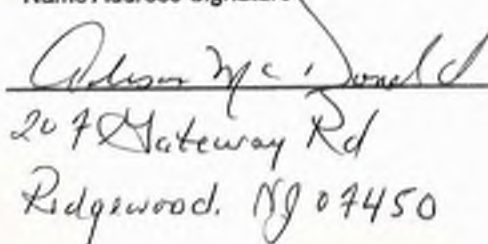 Name Address Signature
Alison McDonald
207 Gateway Rd
Ridgewood. NJ 07450